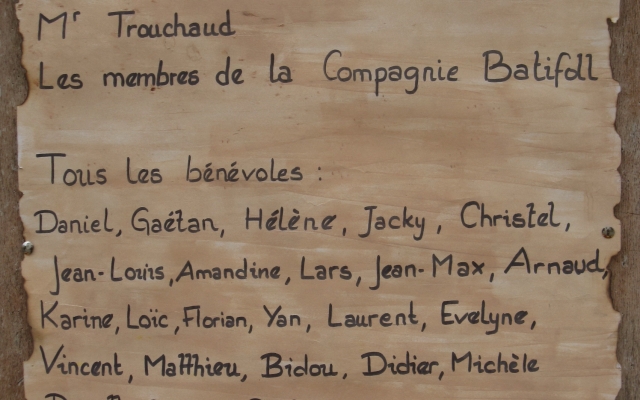 Mr Trouchaud
Les membres de la Compagnie Batifoll
Tous les bénévoles :
Daniel, Gaétan, Hélène, Jacky, Christel,
Jean-Louis, Amandine, Lars, Jean-Max, Arnaud,
Karine, Loïc, Florian, Yan, Laurent, Evelyne,
Vincent, Matthieu, Bidou, Didier, Michèle